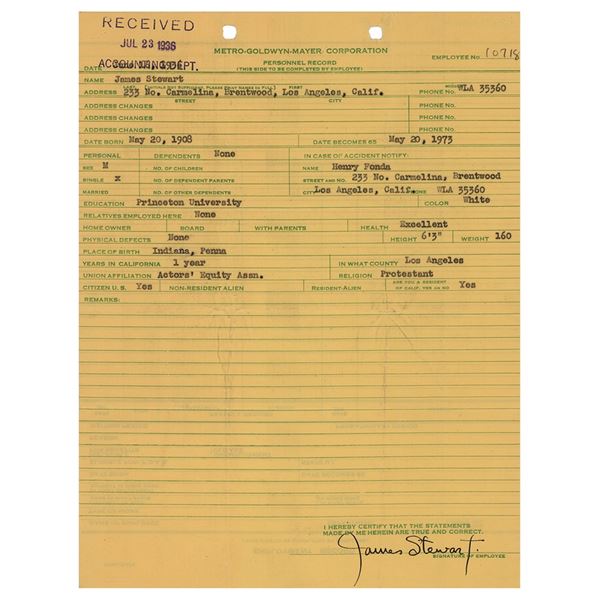 RECEIVED
JUL 23 1936
ACCOUNTING DEPT.
METRO-GOLDWYN-MAYER CORPORATION
PERSONNEL RECORD
(THIS SIDE TO BE COMPLETED BY EMPLOYEE)
EMPLOYEE NO. 10718
DATE
NAME James Stewart
LAST FIRST
ADDRESS 233 No. Carmelina, Brentwood, Los Angeles, Calif. PHONE NO. WLA 35360
STREET CITY
ADDRESS CHANGES PHONE NO.
ADDRESS CHANGES PHONE NO.
ADDRESS CHANGES PHONE NO.
DATE BORN May 20, 1908 DATE BECOMES 65 May 20, 1973
PERSONAL DEPENDENTS None IN CASE OF ACCIDENT NOTIFY:
SEX M NO. OF CHILDREN NAME Henry Fonda
SINGLE X NO. OF DEPENDENT PARENTS STREET AND NO. 233 No. Carmelina, Brentwood
MARRIED NO. OF OTHER DEPENDENTS CITY Los Angeles, Calif. PHONE WLA 35360
EDUCATION Princeton University COLOR White
RELATIVES EMPLOYED HERE None
HOME OWNER BOARD WITH PARENTS HEALTH Excellent
PHYSICAL DEFECTS None HEIGHT 6'3" WEIGHT 160
PLACE OF BIRTH Indiana, Penna
YEARS IN CALIFORNIA 1 year IN WHAT COUNTY Los Angeles
UNION AFFILIATION Actors' Equity Assn. RELIGION Protestant
CITIZEN U.S. Yes NON-RESIDENT ALIEN RESIDENT-ALIEN ARE YOU A RESIDENT OF CALIF. YES OR NO Yes
REMARKS:
I HEREBY CERTIFY THAT THE STATEMENTS
MADE BY ME HEREIN ARE TRUE AND CORRECT.
James Stewart.
SIGNATURE OF EMPLOYEE